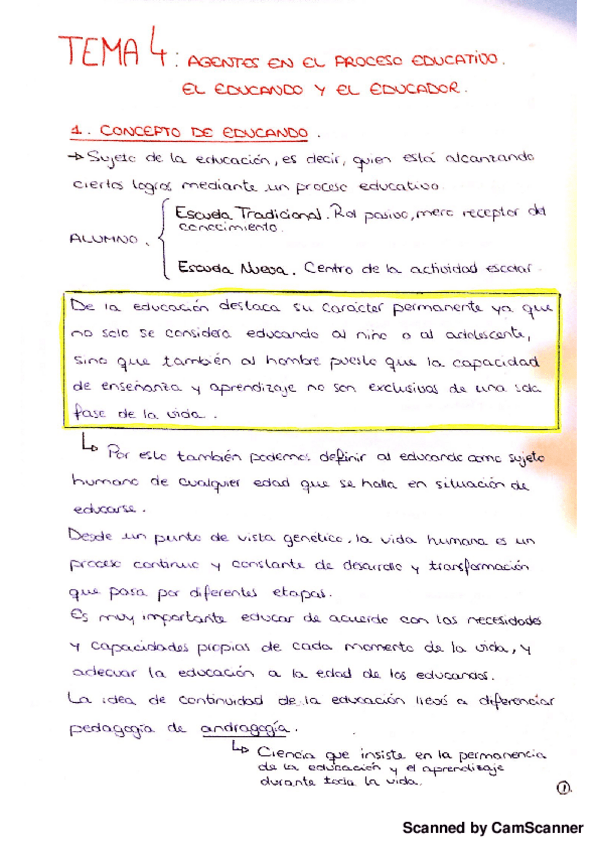 TEMA 4: AGENTES EN EL PROCESO EDUCATIVO.
EL EDUCANDO Y EL EDUCADOR.
1. CONCEPTO DE EDUCANDO.
→ Sujeto de la educación, es decir, quien está alcanzando
ciertos logros mediante un proceso educativo.
ALUMNO.
Escuela Tradicional. Rol pasivo, mero receptor del
conocimiento.
Escuela Nueva. Centro de la actividad escolar.
De la educación destaca su carácter permanente ya que
no solo se considera educando al niño o al adolescente,
sino que también al hombre puesto que la capacidad
de enseñanza y aprendizaje no son exclusivas de una sola
fase de la vida.
↳ Por esto también podemos definir al educando como sujeto
humano de cualquier edad que se halla en situación de
educarse.
Desde un punto de vista genético, la vida humana es un
proceso continuo y constante de desarrollo y transformación
que pasa por diferentes etapas.
Es muy importante educar de acuerdo con las necesidades
y capacidades propias de cada momento de la vida, y
adecuar la educación a la edad de los educandos.
La idea de continuidad de la educación llevó a diferenciar
pedagogía de andragogía.
↳ Ciencia que insiste en la permanencia
de la educación y el aprendizaje
durante toda la vida.
1
Scanned by CamScanner